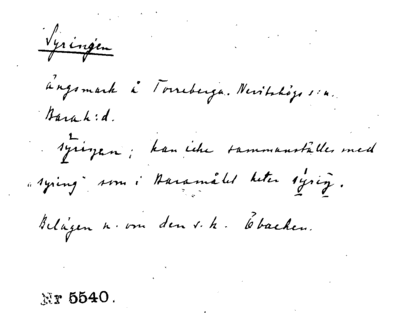 Syringen
ängsmark å Torreberga. Nevitshögs s:n.
Bara h:d.
syringen; kan icke sammanställes med
"syring" som i Baramålet heter
Belägen n. om den s. k. Åbacken.
Nr 5540.